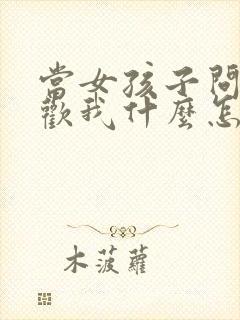 當女孩子問
歡我什麼怎
木菠蘿